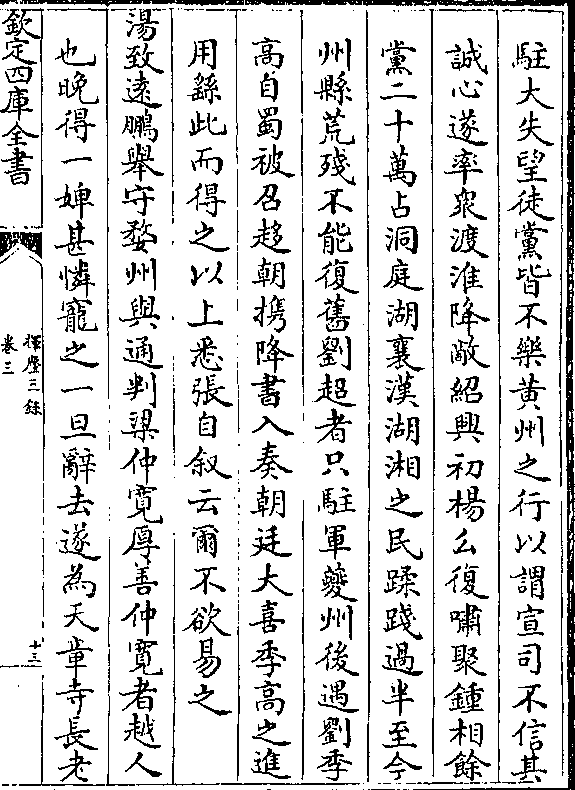 駐大失望徒黨皆不樂黄州之行以謂宣司不信其
誠心遂率衆渡淮降敵紹興初楊么復嘯聚鍾相餘
黨二十萬占洞庭湖襄漢湖湘之民蹂踐過半至今
州縣荒殘不能復舊劉超者只駐軍夔州後遇劉季
高自蜀被召趍朝携降書入奏朝廷大喜季高之進
用繇此而得之以上悉張自叙云爾不欲易之
湯致逺鵬舉守婺州與通判梁仲寛厚善仲寛者越人
也晚得一婢甚憐寵之一旦辭去遂為天童寺長老
欽定四庫全書
揮麈三錄
卷三
十三